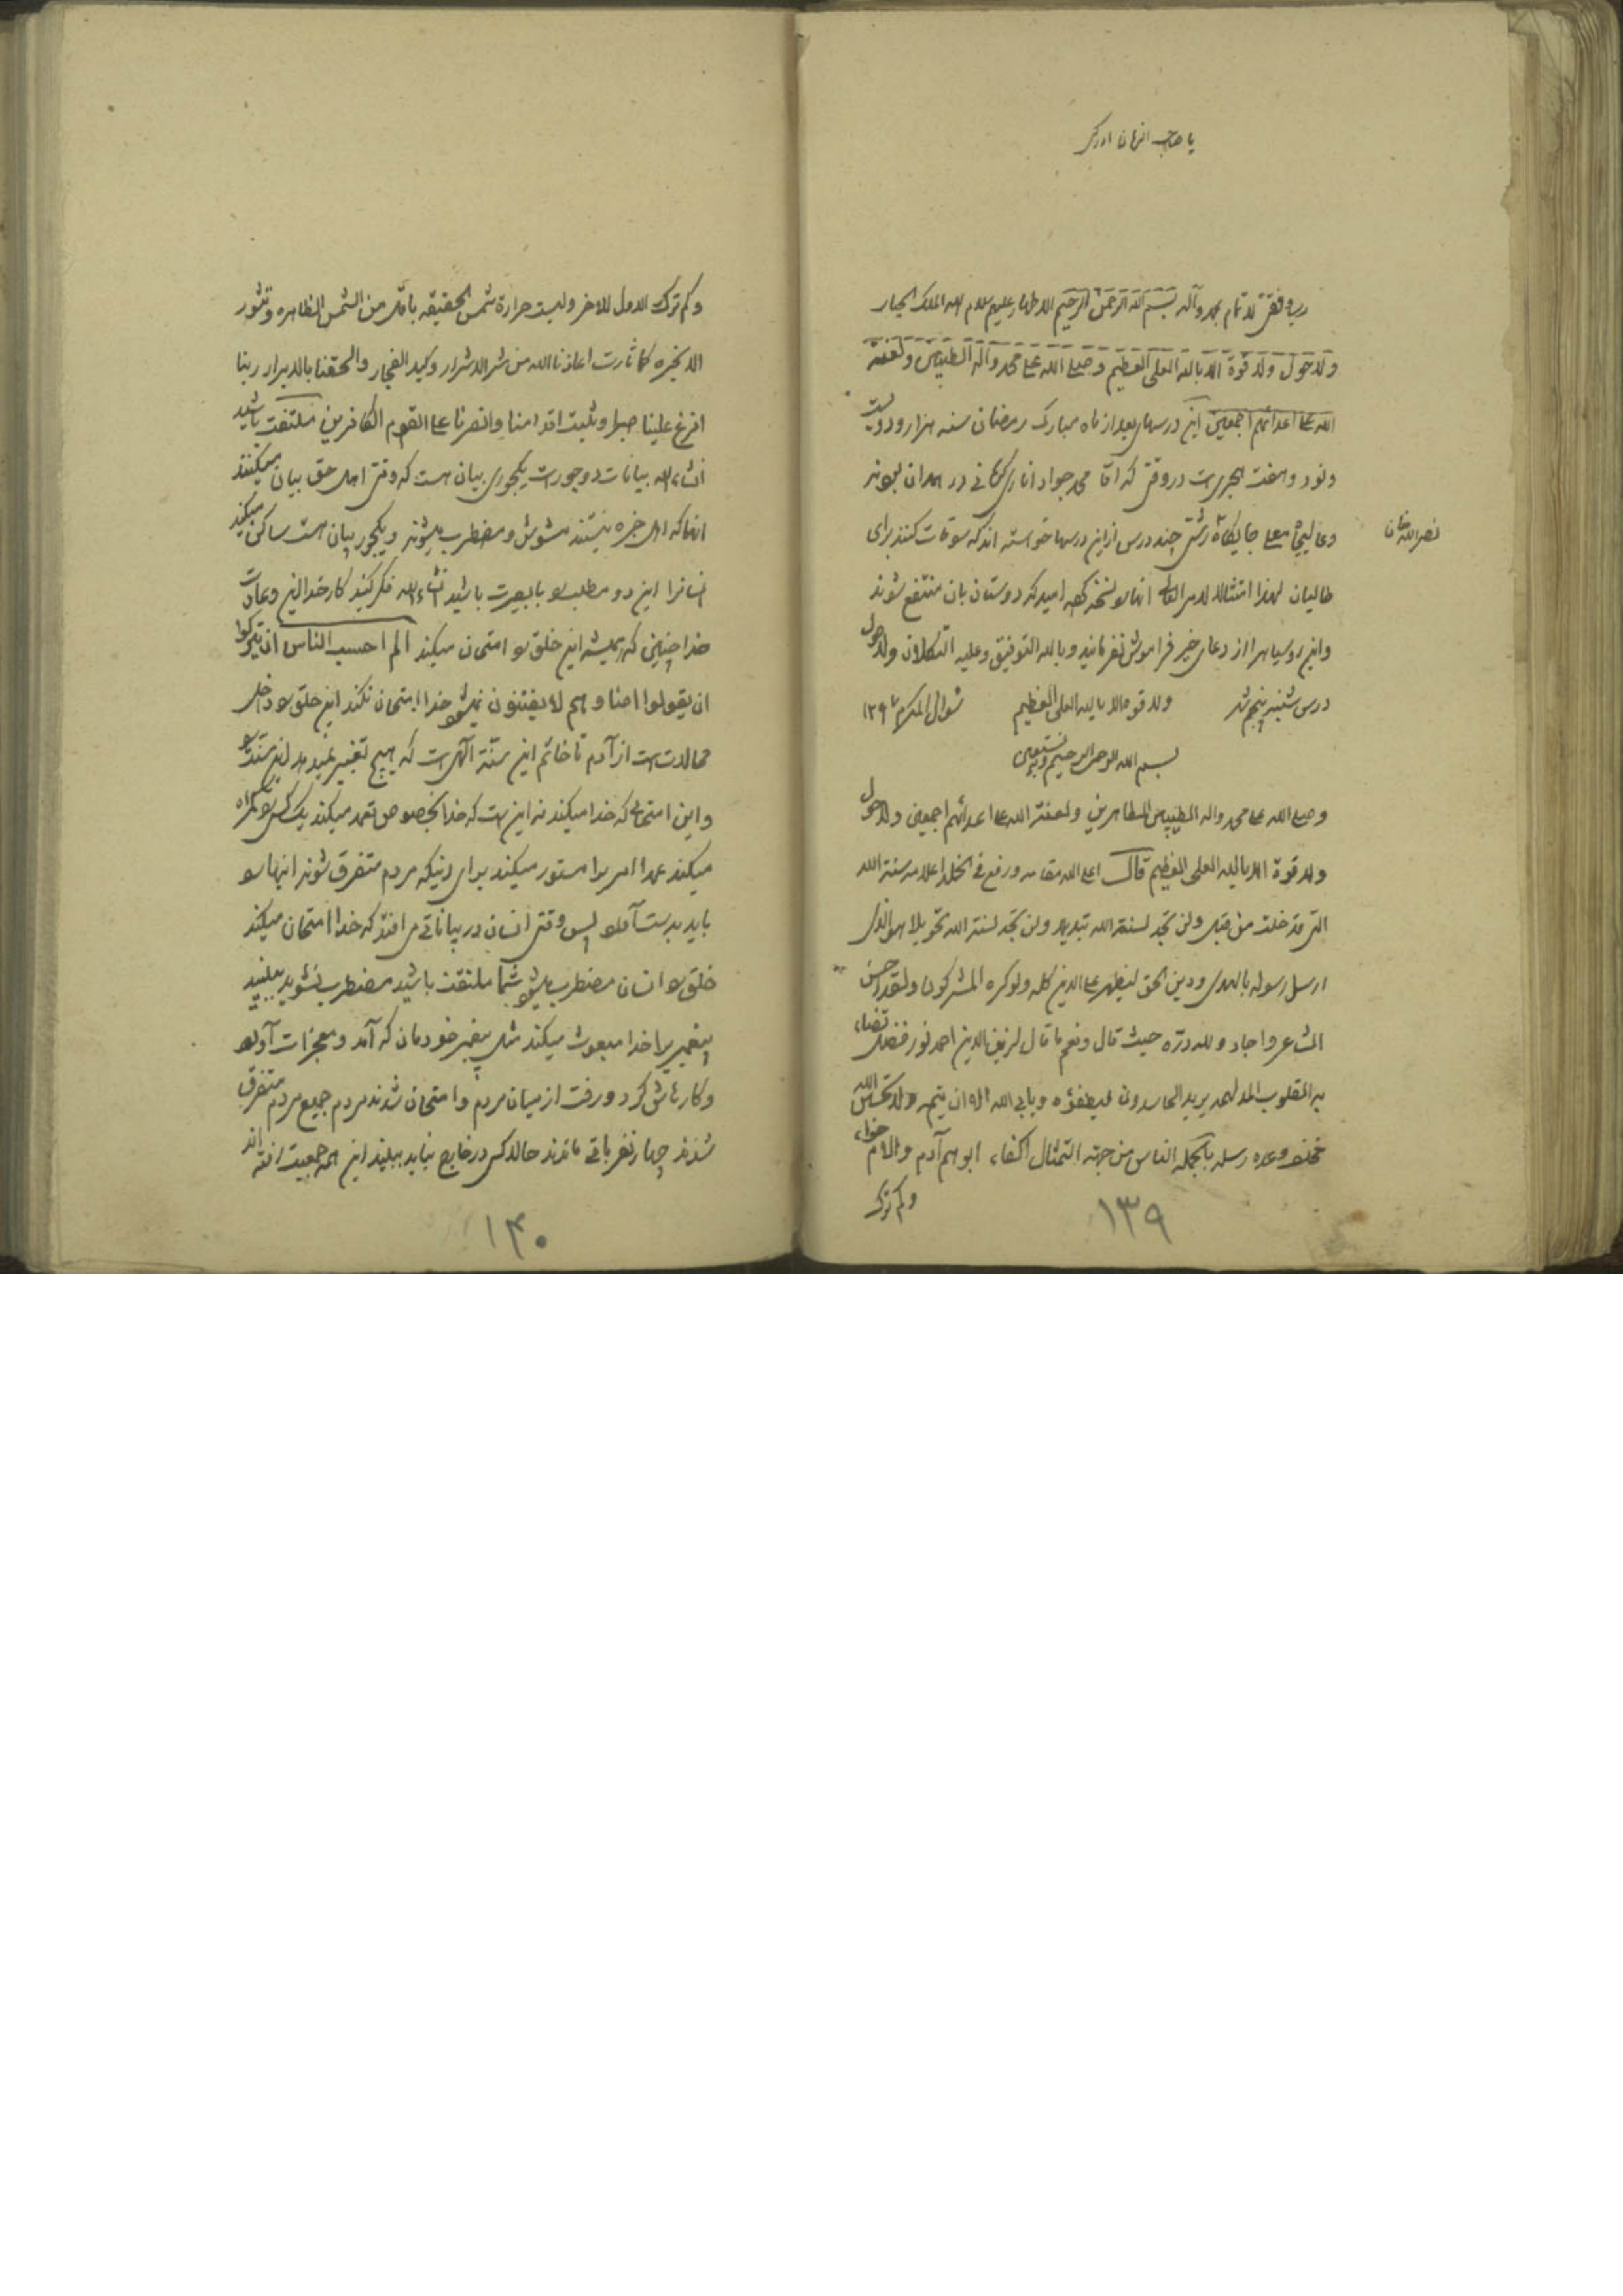 یا صاحب الزمان ادرکنی
رب وفقنی للاتمام بمحمد وآله بسم الله الرحمن الرحیم الاطهار علیهم سلام الله الملک الجبار
ولاحول ولا قوة الا بالله العلی العظیم وصلی الله علی محمد وآله الطیبین ولعنة
الله علی اعدائهم اجمعین این درسهای بعد از ماه مبارک رمضان سنه هزار و دویست
ونود وهفت هجری است در وقتی که آقا محمد جواد اناری کرمانی در همدان بودند
نصرالله خان
وعالیجاه معلی جایگاه رشتی چند درس از این درسها خواسته اند که سوقات کنند برای
طالبان لهذا امتثالا لامر العالی انها را نسخه کرده امید که دوستان بان منتفع شوند
واین روسیاه را از دعای خیر فراموش نفرمایند وبالله التوفیق وعلیه التکلان ولاحول
درس شنبه پنجم شهر ولا قوة الا بالله العلی العظیم شوال المکرم ۱۲۹۷
بسم الله الرحمن الرحیم وبه نستعین
وصلی الله علی محمد واله الطیبین الطاهرین ولعنة الله علی اعدائهم اجمعین ولاحول
ولا قوة الا بالله العلی العظیم قال اعلی الله مقامه ورفع فی الخلد اعلامه سنة الله
التی قد خلت من قبل ولن تجد لسنة الله تبدیلا ولن تجد لسنة الله تحویلا هو الذی
ارسل رسوله بالهدی ودین الحق لیظهره علی الدین کله ولو کره المشرکون ولقد احسن
الشاعر واجاد ولله درّه حیث قال ونعم ما قال لزین الدین احمد نور فضل تضاء
به القلوب المدلهمه یرید الحاسدون لیطفؤه ویابی الله الا ان یتمه ولاتحسبن الله
مخلف وعده رسله بالجمله الناس من جهة التمثال اکفاء ابوهم آدم والام حواء
وکم ترک
۱۳۹
وکم ترک الاول للاخر ولیست حرارة شمس الحقیقه باقل من الشمس الظاهره وتثور
الابخره کما ثارت اعاذنا الله من شر الاشرار وکید الفجار والحقنا بالابرار ربنا
افرغ علینا صبرا وثبت اقدامنا وانصرنا علی القوم الکافرین ملتفت باشید
انشاءالله بیانات دو جور است یکجوری بیان هست که وقتی اهل حق بیان میکنند
انها که اهل خبره نیستند مشوش ومضطرب میشوند ویکجور بیان هست ساکن میکند
انسان را این دو مطلب را بابصیرت باشید انشاءالله فکر کنید کار خدا این وعادت
خدا چنین که همیشه این خلق را امتحان میکند الم احسب الناس ان یترکوا
ان یقولوا امنا وهم لا یفتنون نمیشود خدا امتحان نکند این خلق را داخل
محالات است از آدم تا خاتم این سنة الهی است که هیچ تغییر نمیدهد این سنت را
واین امتحانی که خدا میکند نه این است که خدا بخصوص تعمد میکند یک کسی را گمراه
میکند عمدا امر را مستور میکند برای اینکه مردم متفرق شوند اینها را
باید بدست آورد پس وقتی انسان در بیاناتی می افتد که خدا امتحان میکند
خلق را انسان مضطرب میشود شما ملتفت باشید مضطرب نشوید ببینید
پیغمبر را خدا مبعوث میکند مثل پیغمبر خودمان که آمد ومعجزات آورد
وکارهاش کرد ورفت از میان مردم وامتحان شدند مردم جمیع مردم متفرق
شدند چهار نفر باقی ماندند حالا کسی در خارج نباید ببیند این همه جمعیت رفته اند
۱۴۰